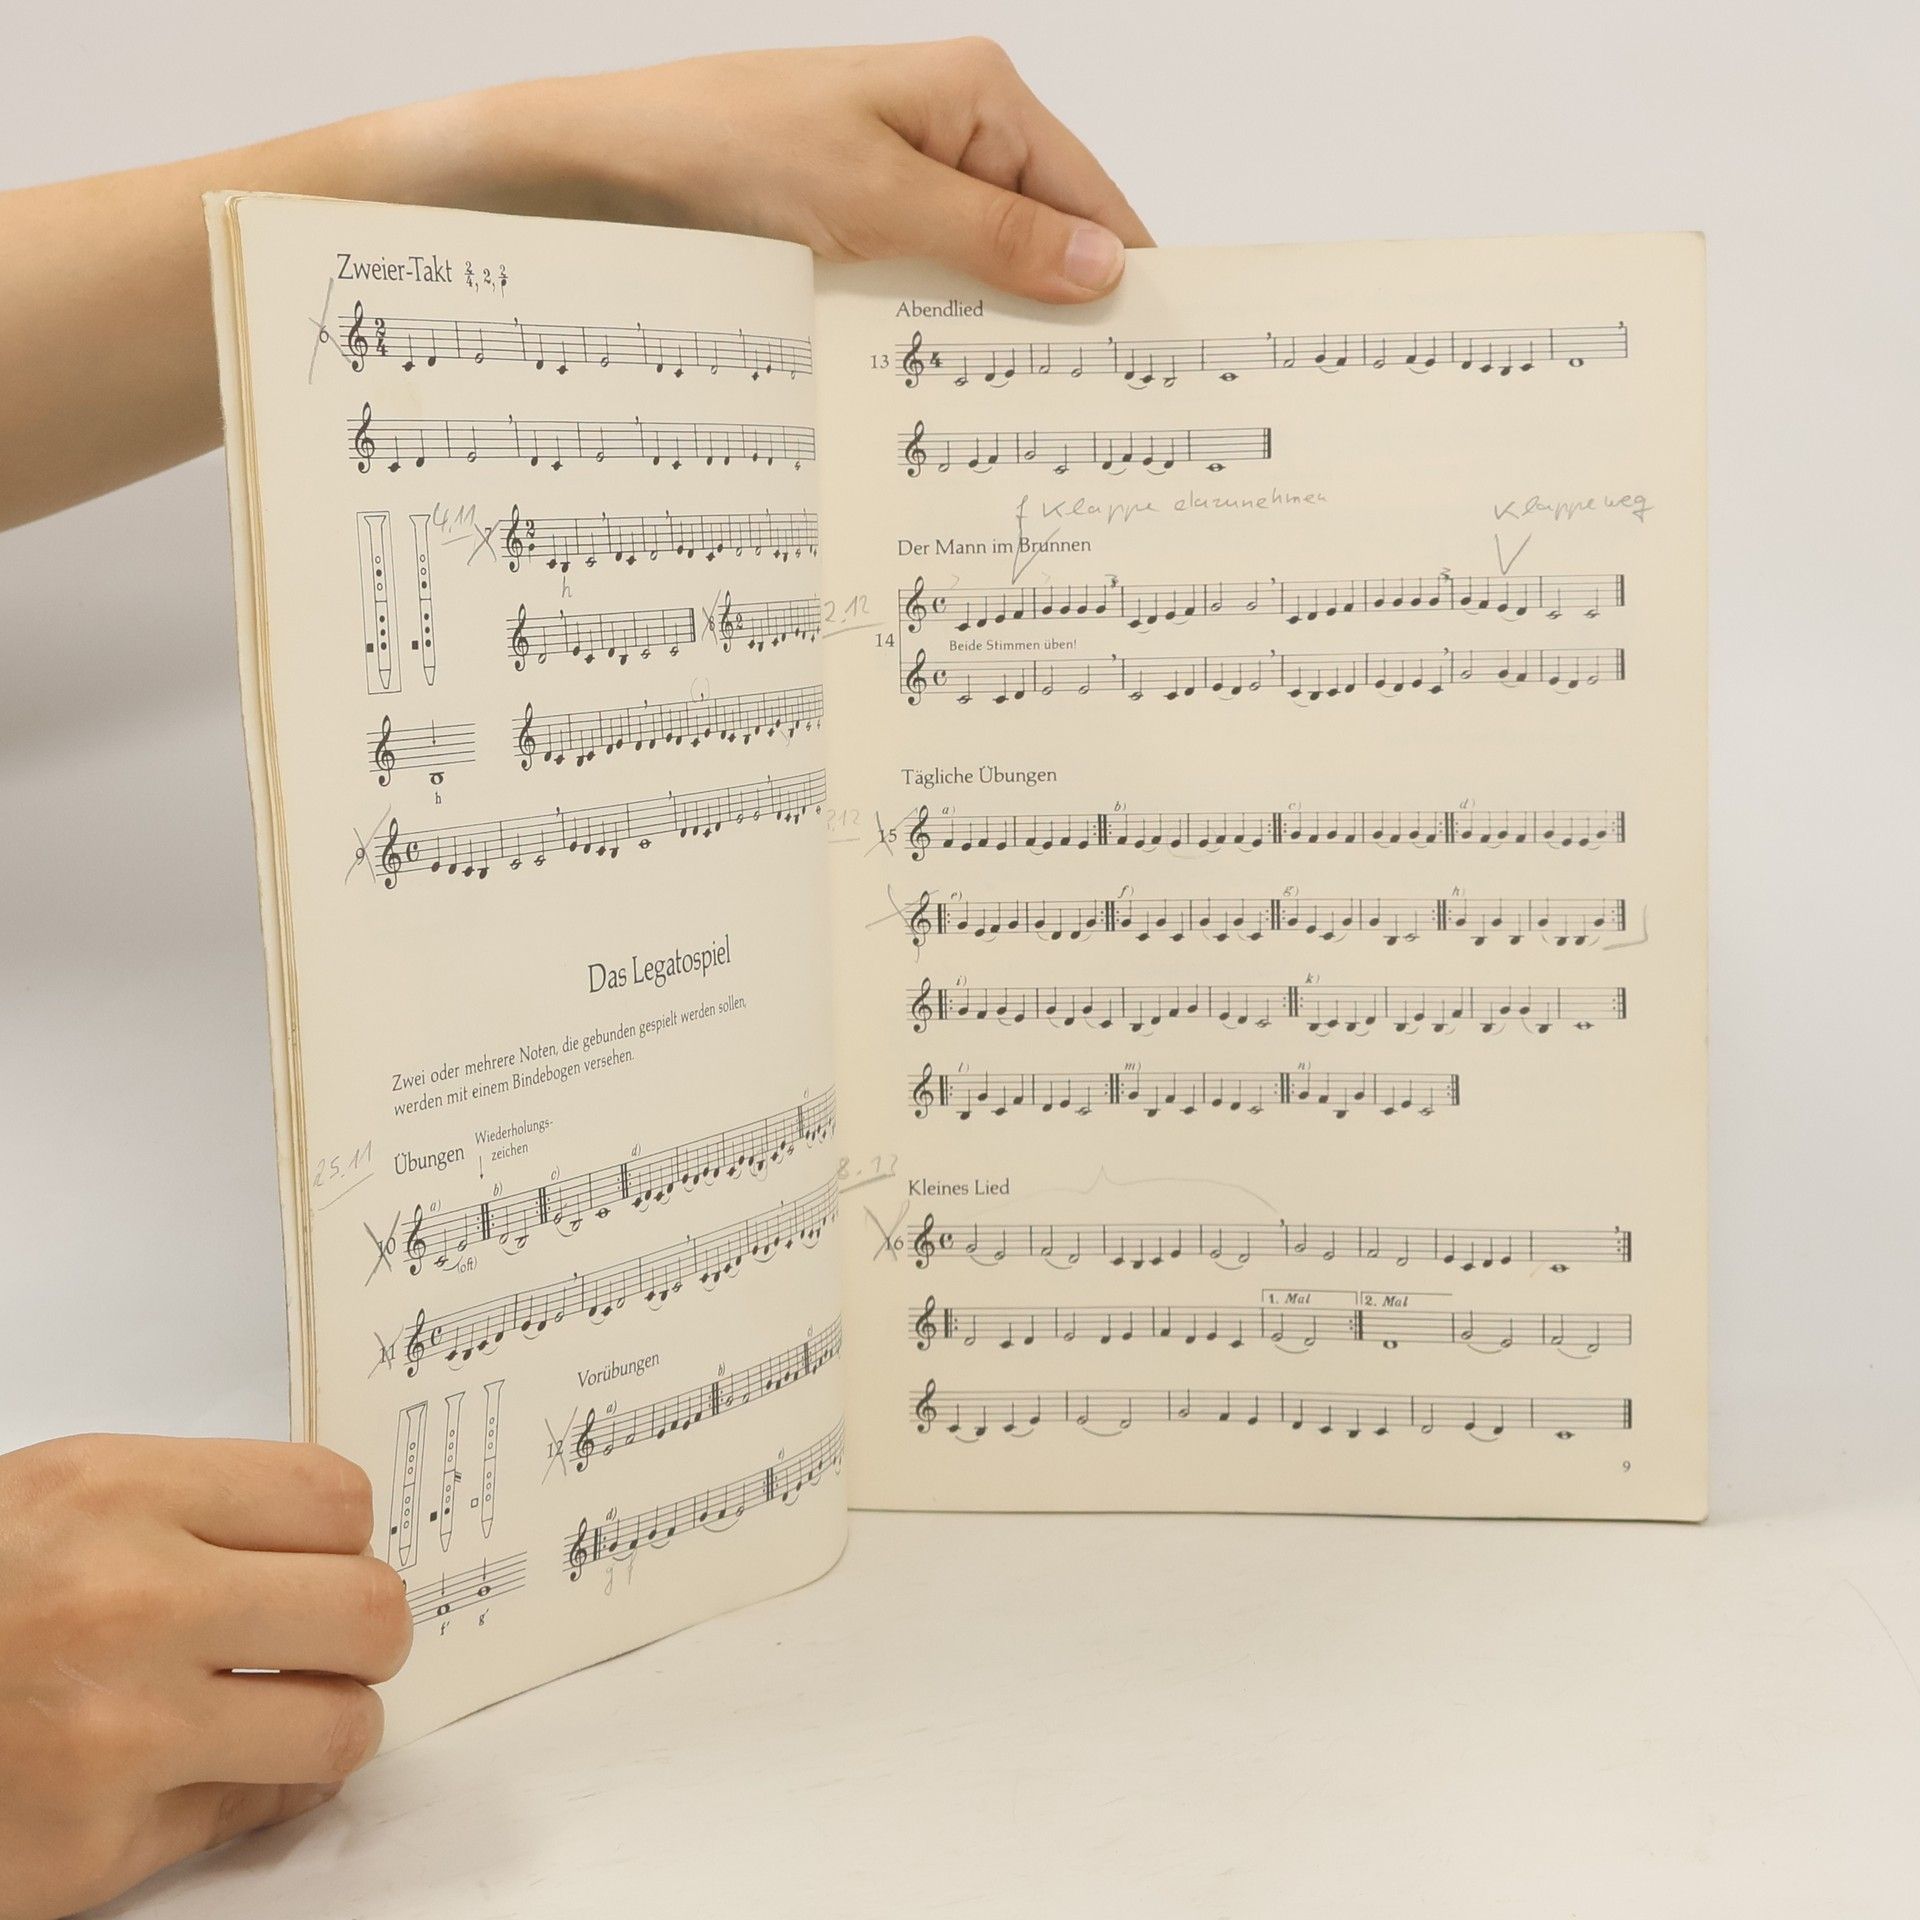 Zweier-Takt 2/4, 2,
6
4.11
7
h
8
h
9
Das Legatospiel
Zwei oder mehrere Noten, die gebunden gespielt werden sollen,
werden mit einem Bindebogen versehen.
25.11
Übungen
Wiederholungs-
zeichen
a) b) c) d) e)
10
(oft)
11
Vorübungen
a) b) c)
12
d) e)
g f
f' g'
Abendlied
13
f Klappe dazunehmen
Klappe weg
Der Mann im Brunnen
2.12
14
Beide Stimmen üben!
Tägliche Übungen
a) b) c) d)
15
e) f) g) h)
i) k)
l) m) n)
Kleines Lied
16
1. Mal 2. Mal
9